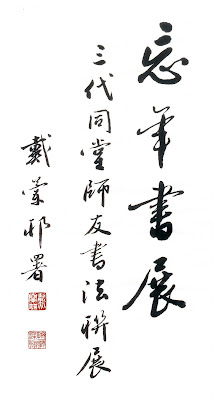 忘年書展
三代同堂師友書法聯展
戴蘭邨署